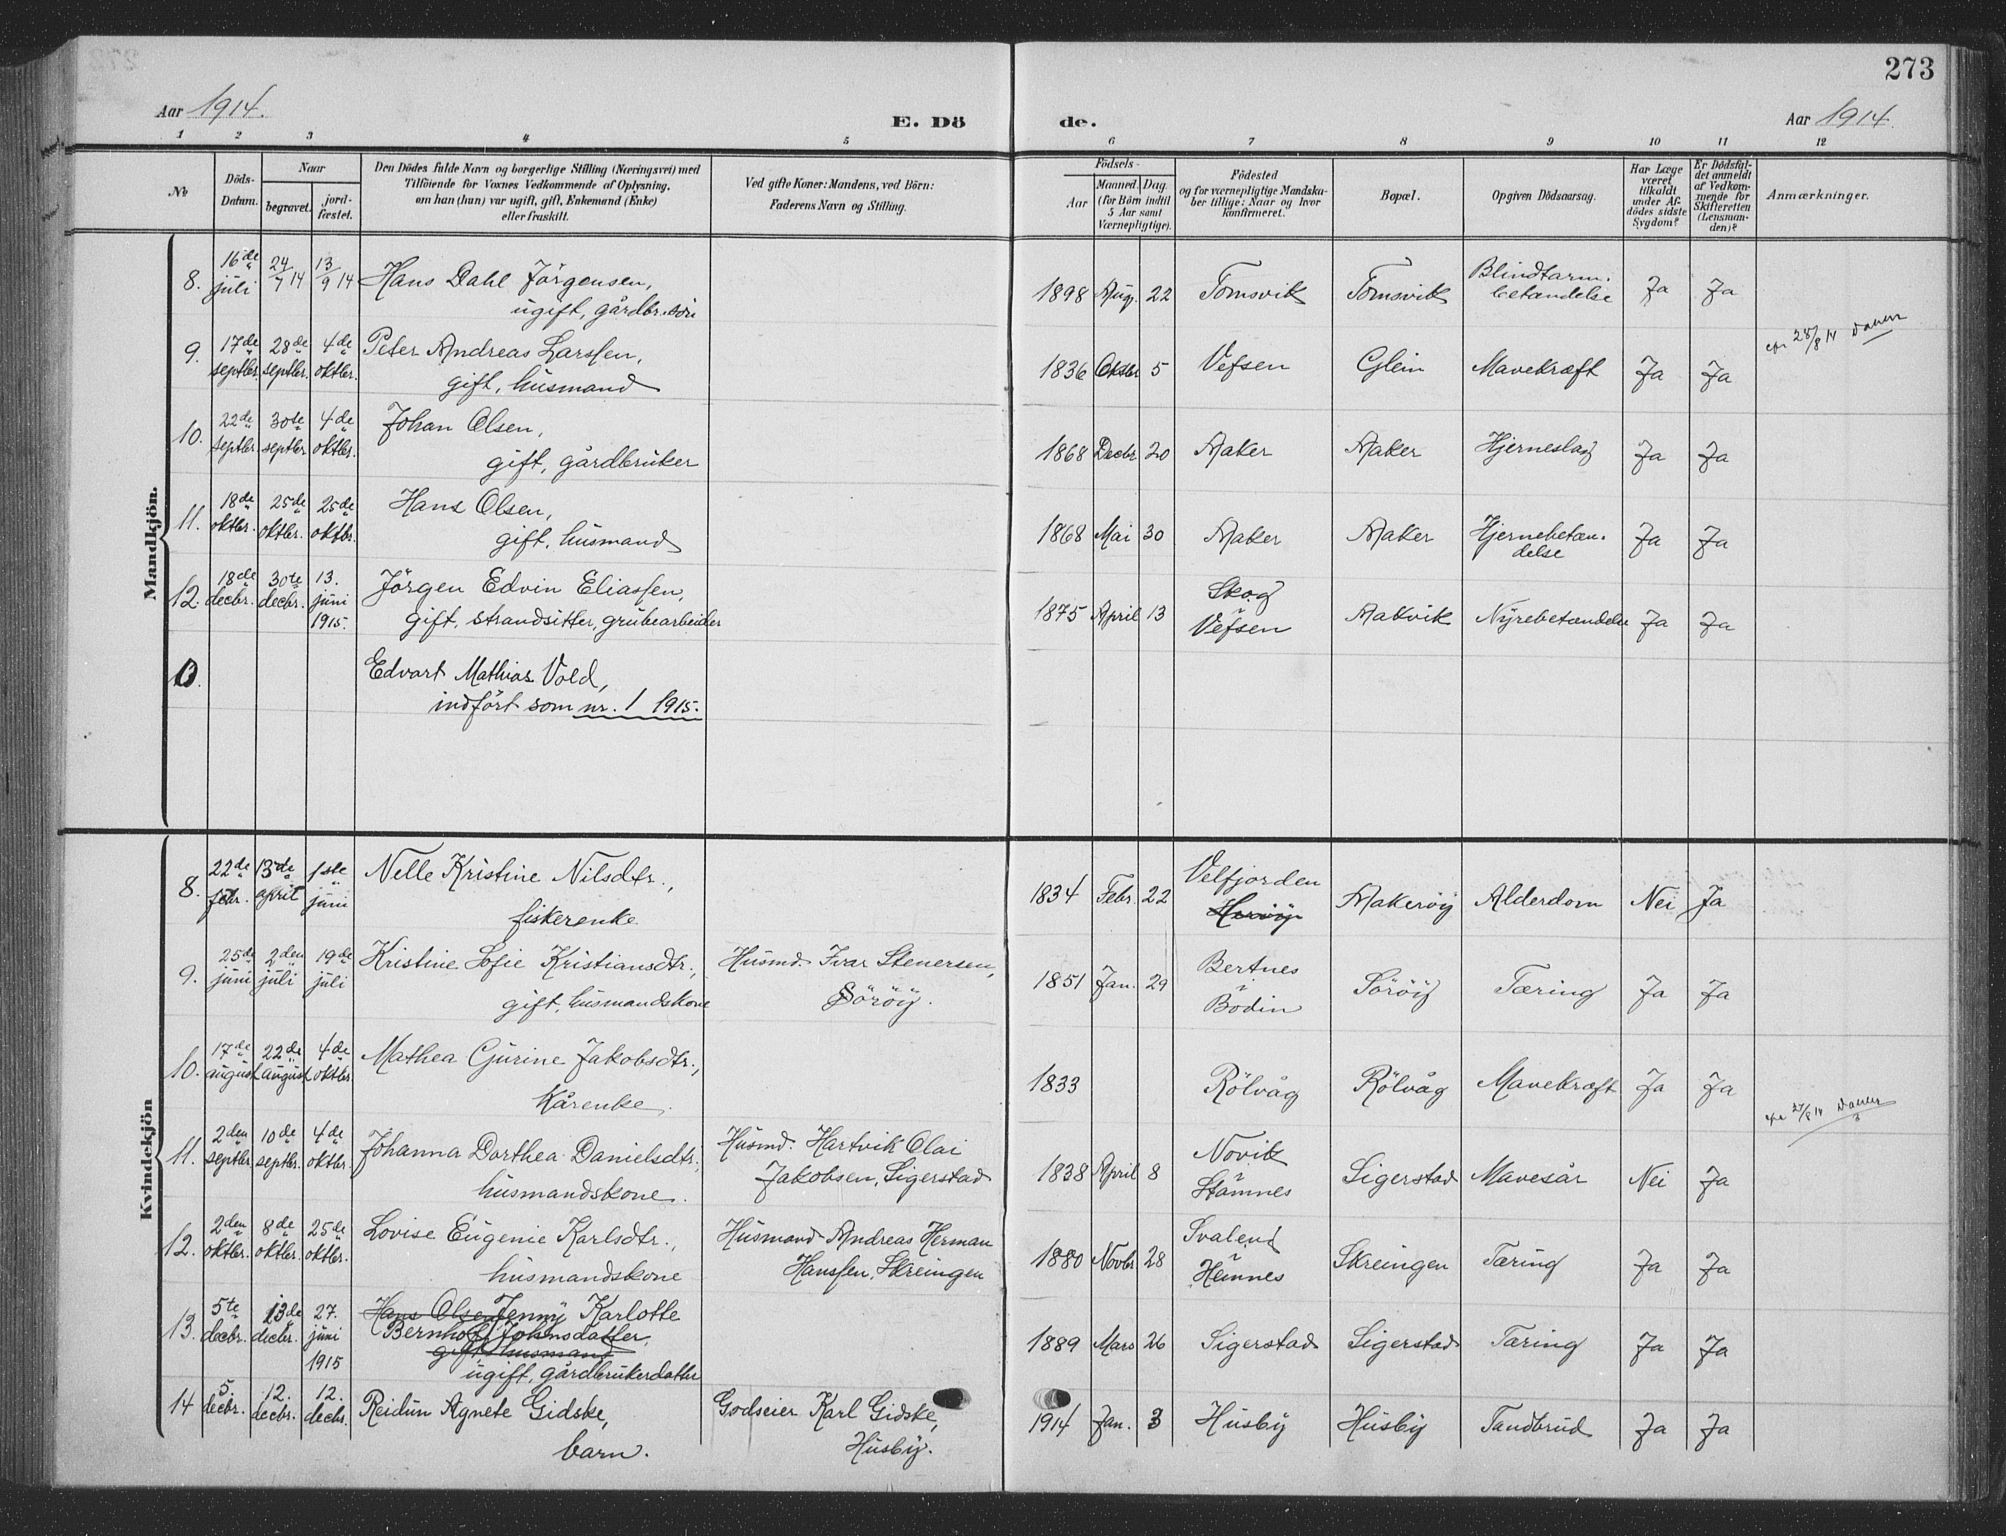 273
Aar 1914.
E. Dö
de.
Aar 1914.
1 2 3 4 5 6 7 8 9 10 11 12
No
Döds-
Datum.
Naar
begravet.
jord-
fæstet.
Den Dödes fulde Navn og borgerlige Stilling (Næringsvei) med
Tilföiende for Voxnes Vedkommende af Oplysning,
om han (hun) var ugift, gift, Enkemand (Enke)
eller fraskilt.
Ved gifte Koner: Mandens, ved Börn:
Faderens Navn og Stilling.
Födsels-
Aar
Maaned. Dag.
(for Börn indtil
5 Aar samt
Værnepligtige).
Födested
og for værnepligtige Mandska-
ber tillige: Naar og hvor
konfirmeret.
Bopæl.
Opgiven Dödsaarsag.
Har Læge
været
tilkaldt
under Af-
dödes sidste
Sygdom?
Er Dödsfal-
det anmeldt
af Vedkom-
mende for
Skifteretten
(Lensman-
den)?
Anmærkninger.
Mandkjön.
8. 16de juli 24/7 14 13/9 14 Hans Dahl Jörgensen, 1898 Aug. 22 Tomsvik Tomsvik Blindtarm- Ja Ja
ugift, gårdbr.sön betændelse
28/8 14
9. 17de septbr. 28de septbr. 4de oktbr. Peter Andreas Larssen, 1836 Oktbr 5 Vefsen Glein Mavekræft Ja Ja
gift, husmand
10. 22de septbr. 30te septbr. 4de oktbr. Johan Olsen, 1868 Decbr 20 Aaker Aaker Hjerneslag Ja Ja
gift, gårdbruker
11. 18de oktbr. 25de oktbr. 25de oktbr. Hans Olsen, 1868 Mai 30 Aaker Aaker Hjernebetæn- Ja Ja
gift, husmand delse
12. 18de decbr. 30te decbr. 13. juni 1915. Jörgen Edvin Eliassen, 1875 April 13 Skog i Vefsen Aakvik Nyrebetændelse Ja Ja
gift, strandsitter, grubearbeider
Edvart Mathias Vold,
indført som nr. 1 1915.
Kvindekjön
8. 22de febr. 13de april 1ste juni Nelle Kristine Nilsdtr., 1834 Febr. 22 Velfjorden Herøy Aakerøy Alderdom Nei Ja
fiskerenke
9. 25de juni 2den juli 19de juli Kristine Sofie Kristiansdtr., Husmd. Ivar Stenersen, 1851 Jan. 29 Bertnes i Bodin Söröy Tæring Ja Ja
gift, husmandskone Söröy.
10. 17de august 22de august 4de oktbr. Mathea Gurine Jakobsdtr., 1833 Rölvåg Rölvåg Mavekræft Ja Ja
Kårenke.
27/8 14
11. 2den septbr 10de septbr. 4de oktbr. Johanna Dorthea Danielsdtr., Husmd. Hartvik Olai 1838 April 8 Novik i Stamnes Sigerstad Mavesår Nei Ja
husmandskone. Jakobsen, Sigerstad
12. 2den oktbr. 8de oktbr. 25de oktbr. Lovise Eugenie Karlsdtr., Husmand Andreas Herman 1880 Novbr 28 Svalend i Hemnes Skreingen Tæring Ja Ja
husmandskone Hanssen, Skreingen
13. 5te decbr. 13de decbr. 27. juni 1915 Hans Olsen Jenny Karlotte 1889 Mars 26 Sigerstad Sigerstad Tæring Ja Ja
Bernhoft Johnsdatter,
gift husmand
ugift, gårdbrukerdatter
14 5. decbr. 12. decbr. 12. decbr. Reidun Agnete Gidske, Godseier Karl Gidske, 1914 Jan. 3 Husby Husby Tandbrud Ja Ja
barn. Husby.